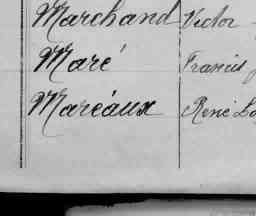 Marchand Victor
Maré Francis
Maréaux René